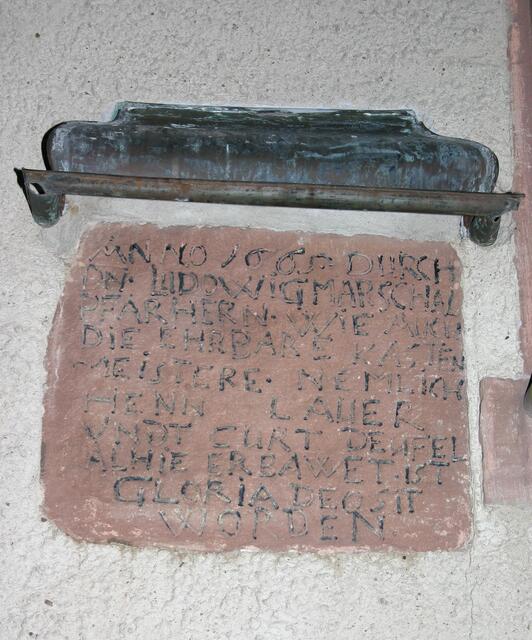 ANNO 1665 DURCH
DN. LUDOWIG MARSCHAL
PFARHERN. WIE AUCH
DIE EHRBARE KASTEN
MEISTERE. NEMLICH
HENN LAUER
VNDT CURT DEMFEL
ALHIE ERBAWET IST
GLORIA DEO SIT
WORDEN